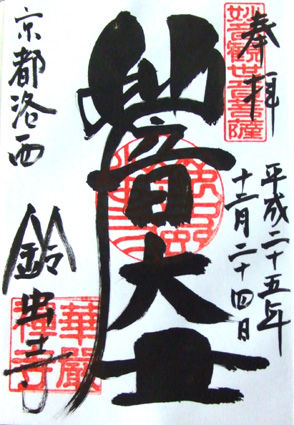 奉拝
妙音觀世音菩薩
平成二十五年
十二月二十四日
妙音大士
京都洛西
鈴虫寺
華嚴禪寺